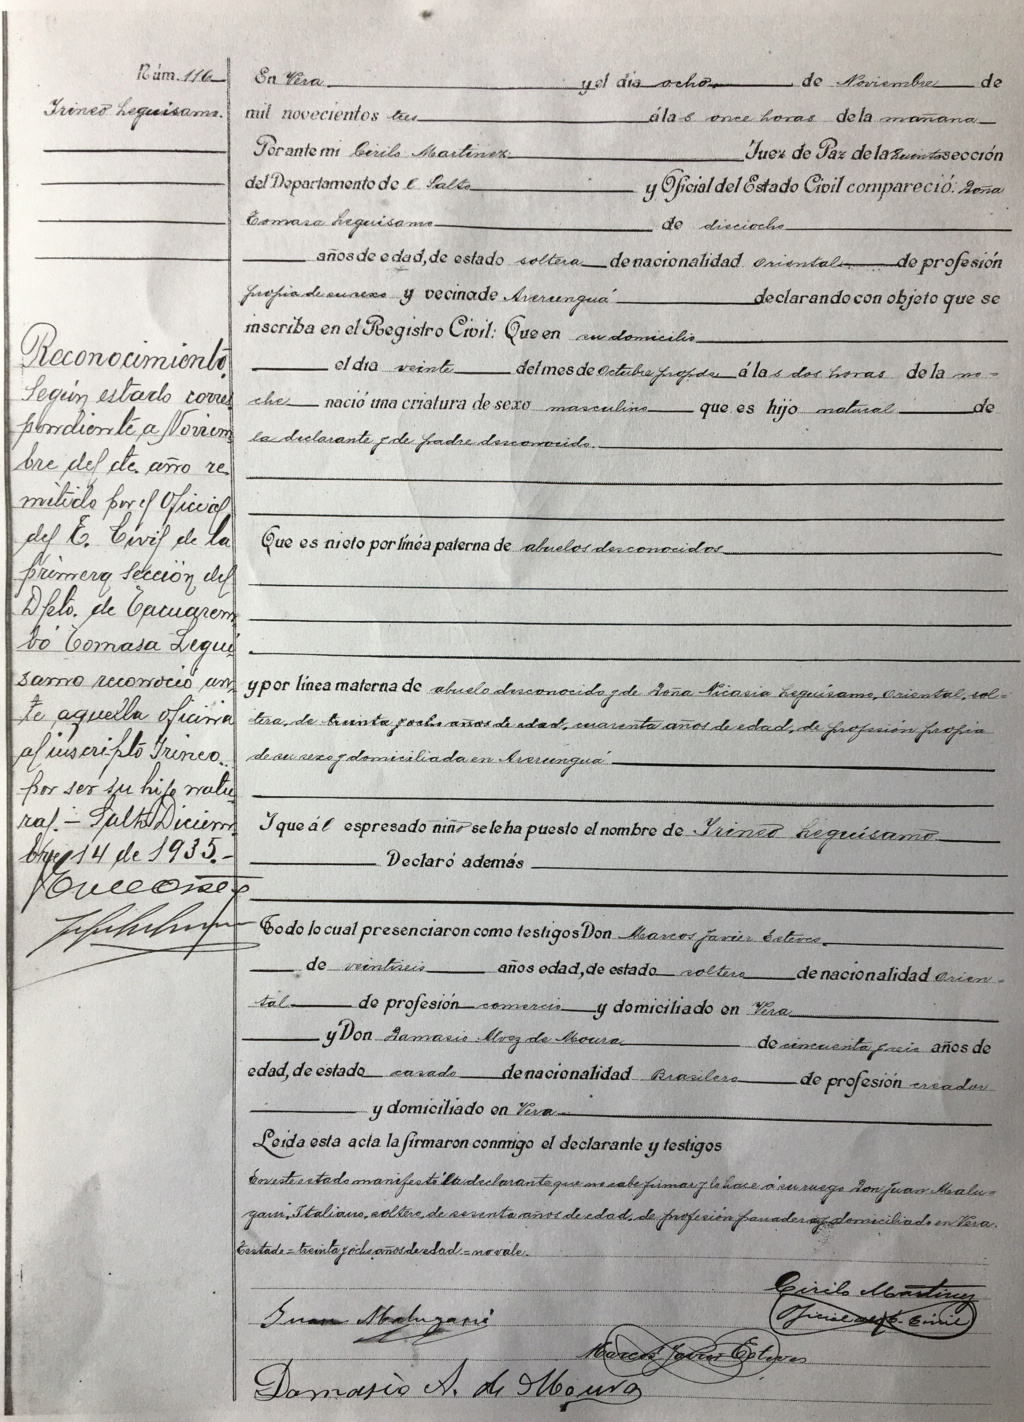 Núm. 116
Irineo Leguisamo.
En Vera y el dia ocho de Noviembre de
mil novecientos tres á las once horas de la mañana
Por ante mi Cirilo Martinez Juez de Paz de la Quinta sección
del Departamento del Salto y Oficial del Estado Civil compareció: Doña
Tomasa Leguisamo de dieciocho
años de edad, de estado soltera de nacionalidad oriental de profesión
propia de su sexo y vecina de Arerunguá declarando con objeto que se
inscriba en el Registro Civil: Que en su domicilio
el dia veinte del mes de Octubre ppdo. á las dos horas de la no-
che nació una criatura de sexo masculino que es hijo natural de
la declarante y de padre desconocido.
Que es nieto por línea paterna de abuelos desconocidos
y por línea materna de abuelo desconocido y de Doña Nicasia Leguisamo, Oriental, sol-
tera, de treinta y ocho años de edad, cuarenta años de edad, de profesión propia
de su sexo y domiciliada en Arerunguá
I que ál espresado niño se le ha puesto el nombre de Irineo Leguisamo
Declaró además
Todo lo cual presenciaron como testigos Don Marcos Javier Esteves
de veintiseis años edad, de estado soltero de nacionalidad Orien-
tal de profesión comercio y domiciliado en Vera
y Don Damasio Alvez de Moura de cincuenta y seis años de
edad, de estado casado de nacionalidad Brasilero de profesión creador
y domiciliado en Vera
Leida esta acta la firmaron conmigo el declarante y testigos
En este estado manifestó la declarante que no sabe firmar y lo hace á su ruego Don Juan Malu-
gani, Italiano, soltero, de sesenta años de edad, de profesión panadero y domiciliado en Vera.
Testado = treinta y ocho años de edad = no vale.
Cirilo Martinez
Oficial del E. Civil
Juan Malugani
Marcos Javier Esteves
Damasio A. de Moura
Reconocimiento.
Según estado corres
pondiente a Noviem
bre del cte. año re
mitido por el Oficial
del E. Civil de la
primera sección del
Dpto. de Tacuarem
bó Tomasa Legui
samo reconoció an
te aquella oficina
al inscripto Irineo
por ser su hijo natu
ral. - Salto Diciem
bre 14 de 1935.-